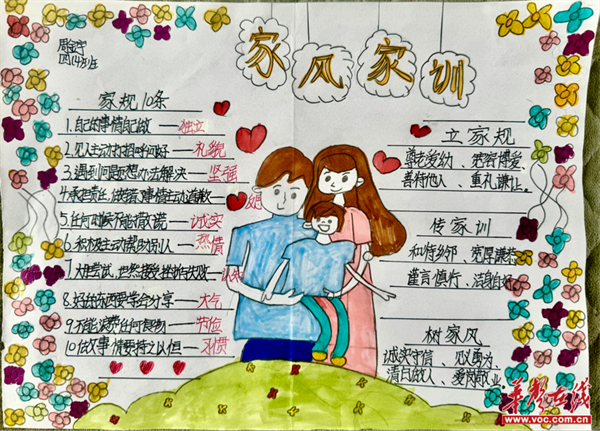 家风家训
家规10条
1.自己的事情自己做——独立
2.见人主动打招呼问好——礼貌
3.遇到问题想办法解决——坚强
4.承担责任,做错事情主动道歉——
5.任何时候不能撒谎——诚实
6.积极主动帮助别人——热情
7.大胆尝试,坦然接受挫折与失败——认知
8.好东西要学会分享——大气
9.不能浪费任何食物——节俭
10做事情要持之以恒——习惯
立家规
尊老爱幼、宽容博爱
善待他人、重礼谦让。
传家训
和待乡邻、宽厚谦恭
谨言慎行、洁身自好
树家风
诚实守信、见义勇为
清白做人、爱岗敬业
华声在线
www.voc.com.cn